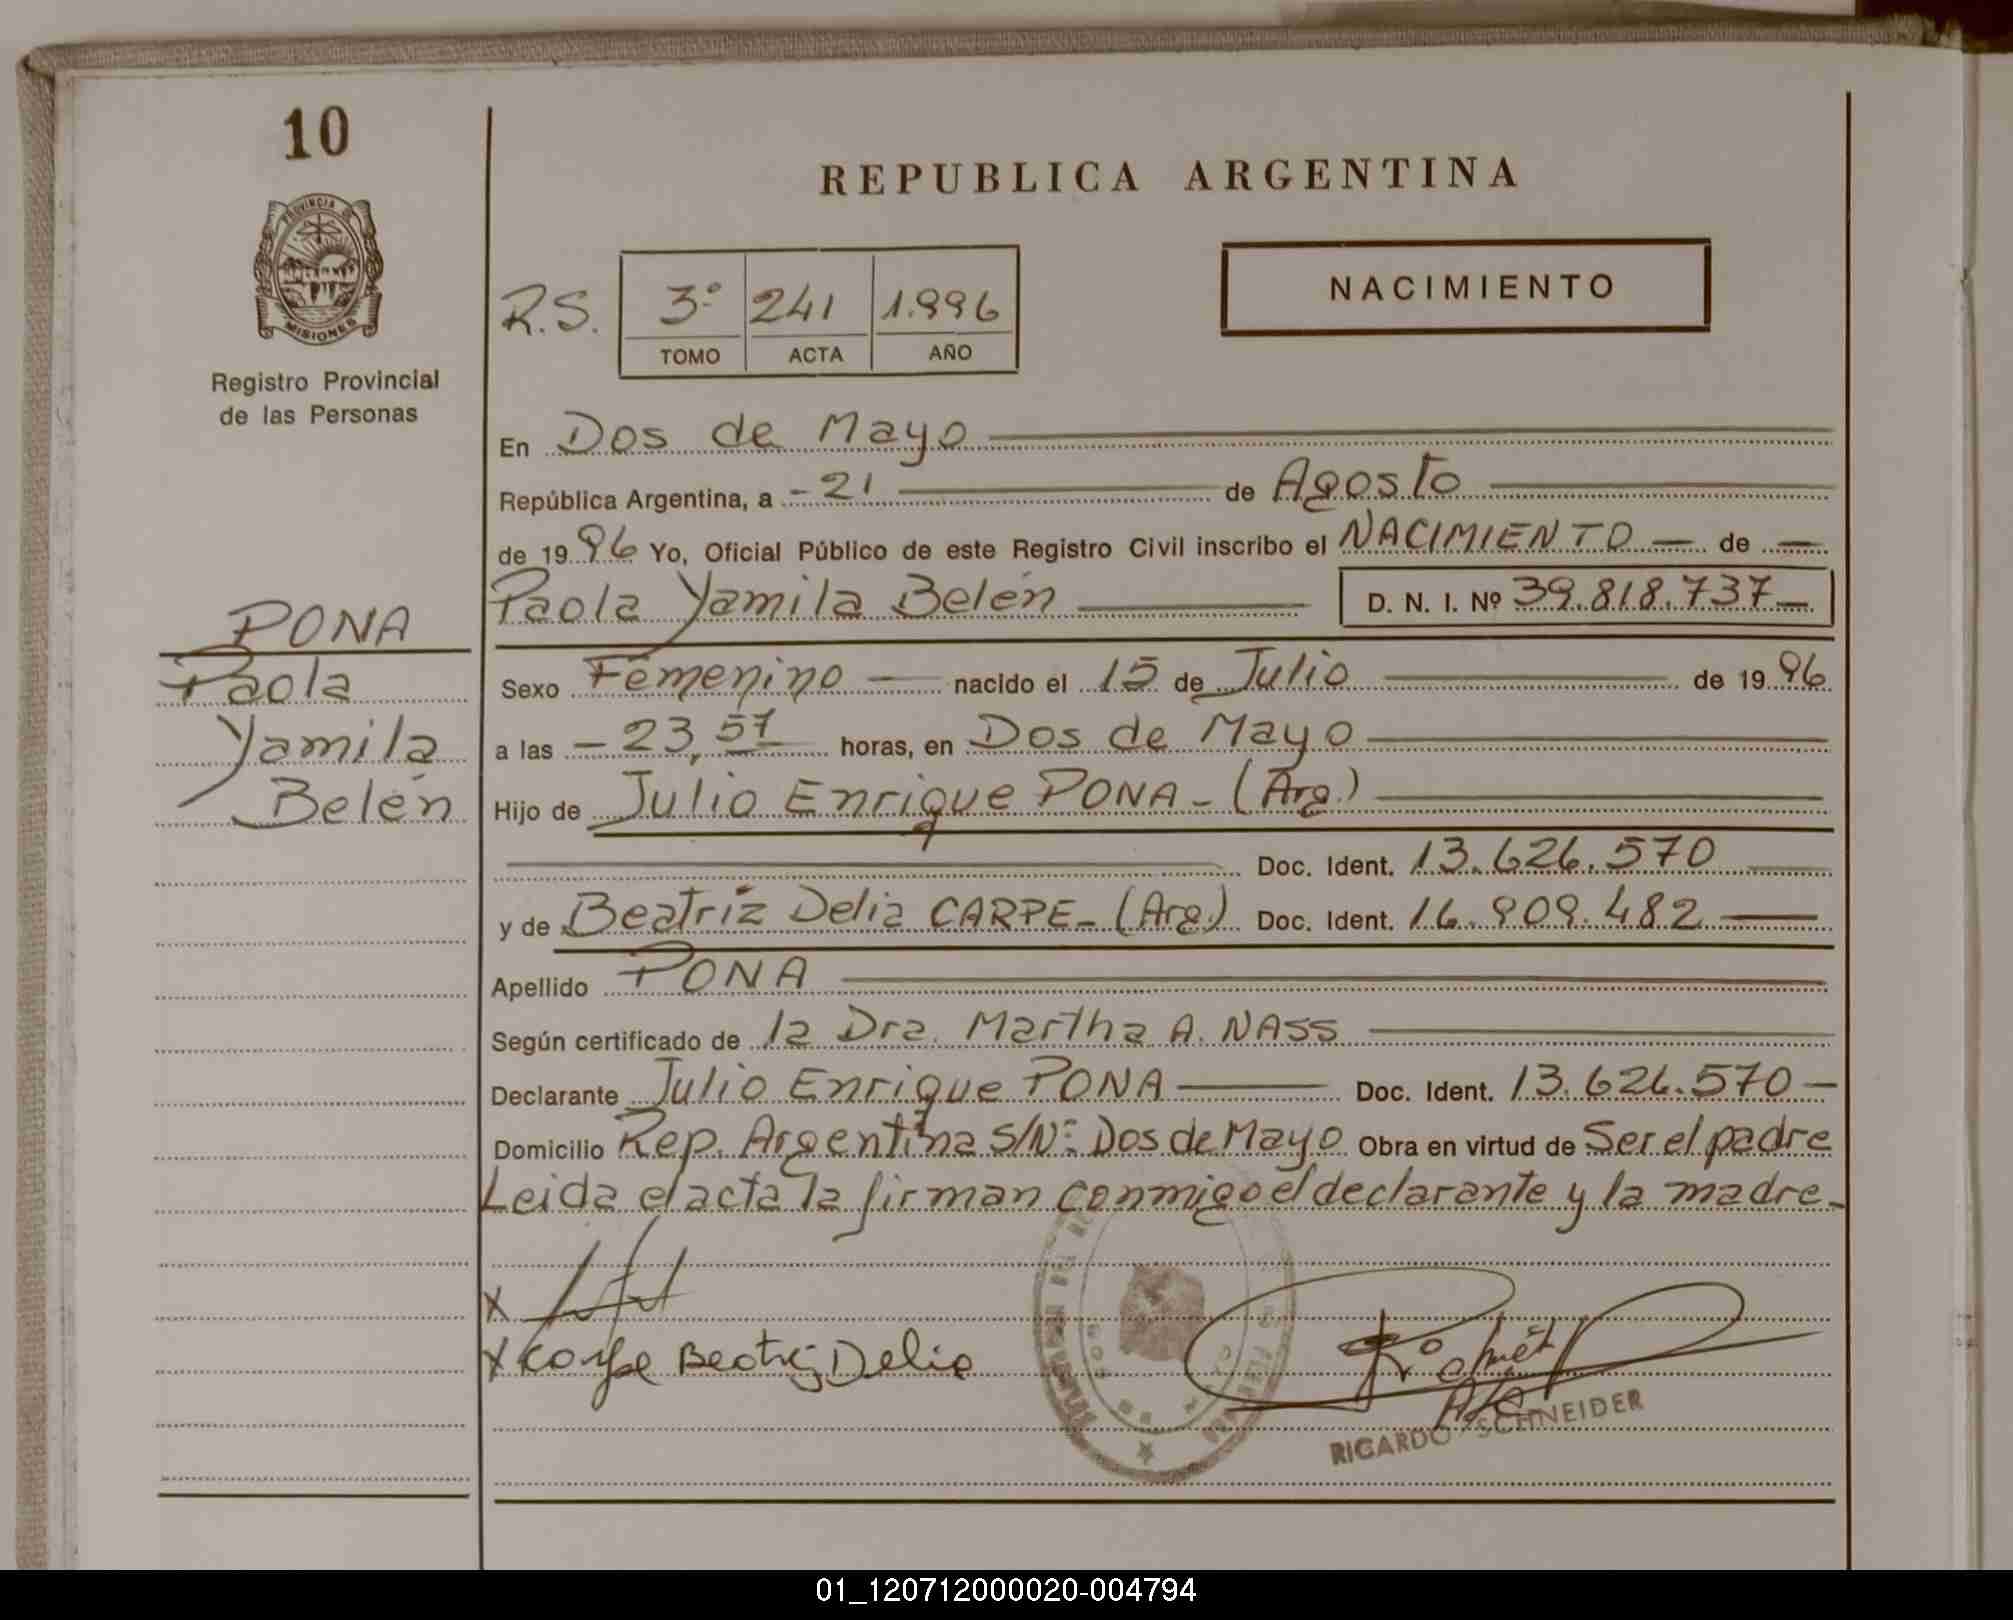 10
PROVINCIA DE
MISIONES
Registro Provincial
de las Personas
REPUBLICA ARGENTINA
NACIMIENTO
R.S. 3º 241 1.996
TOMO ACTA AÑO
En Dos de Mayo
República Argentina, a - 21 de Agosto
de 1996 Yo, Oficial Público de este Registro Civil inscribo el NACIMIENTO — de —
Paola Yamila Belén — D. N. I. Nº 39.818.737—
PONA
Paola
Yamila
Belén
Sexo Femenino — nacido el 15 de Julio — de 1996
a las — 23,57 horas, en Dos de Mayo
Hijo de Julio Enrique PONA - (Arg.)
Doc. Ident. 13.626.570
y de Beatriz Delia CARPE - (Arg.) Doc. Ident. 16.909.482
Apellido PONA
Según certificado de la Dra. Martha A. NASS
Declarante Julio Enrique PONA — Doc. Ident. 13.626.570 —
Domicilio Rep. Argentina S/Nº Dos de Mayo Obra en virtud de Ser el padre
Leida el acta la firman conmigo el declarante y la madre.
X
X Carpe Beatriz Delia
RICARDO SCHNEIDER
01_120712000020-004794